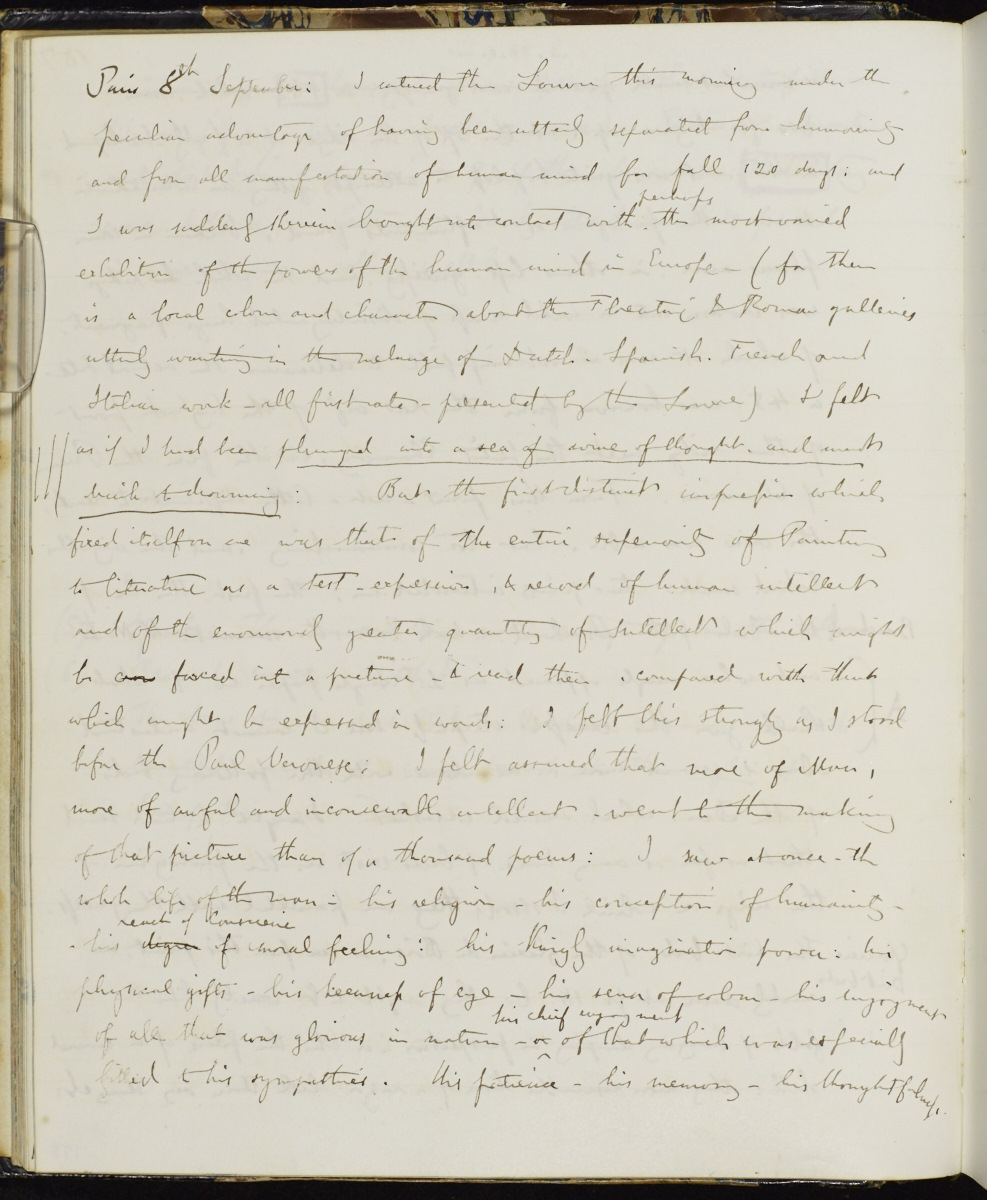 Paris 8th September: I entered the Louvre this morning under the
peculiar advantage of having been utterly separated from humanity
and from all manifestation of human mind for full 120 days: and
perhaps
I was suddenly therein brought into contact with the most varied
exhibition of the powers of the human mind in Europe - (for there
is a local colour and character about the Florentine & Roman galleries
utterly wanting in the melange of Dutch. Spanish. French and
Italian work - all first rate - presented by the Louvre) & I felt
as if I had been plunged into a sea of wine of thought, and must
drink to drowning: But the first distinct impression which
fixed itself on me was that of the entire superiority of Painting
to literature as a test - expression, & record of human intellect
and of the enormously greater quantity of Intellect which might
be forced into a picture - & read there - compared with that
which might be expressed in words: I felt this strongly as I stood
before the Paul Veronese: I felt assured that more of Man,
more of awful and inconceivable intellect - went to the making
of that picture than of a thousand poems: I saw at once - the
whole life of the man - his religion - his conception of humanity -
reach of Conscience
- his degree of moral feeling: his Kingly imaginative power: his
physical gifts - his keenness of eye - his sense of colour - his enjoyment
his chief enjoyment
of all that was glorious in nature - or of that which was especially
fitted to his sympathies. His patience - his memory - his thoughtfulness.